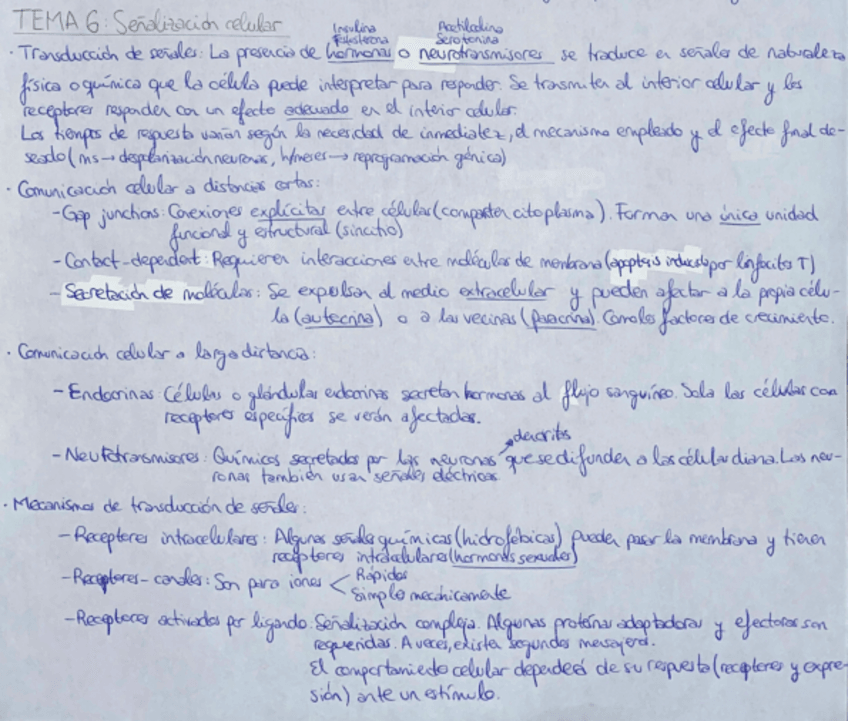 TEMA 6: Señalización celular
Insulina Acetilcolina
Serotonina
· Transducción de señales: La presencia de hormonas o neurotransmisores se traduce en señales de naturaleza
física o química que la célula puede interpretar para responder. Se transmiten al interior celular y los
receptores responden con un efecto adecuado en el interior celular.
Los tiempos de respuesta varían según la necesidad de inmediatez, el mecanismo empleado y el efecto final de-
seado (ms → despolarización neuronas, h/meses → reprogramación génica)
· Comunicación celular a distancias cortas:
- Gap junctions: Conexiones explícitas entre células (comparten citoplasma). Forman una única unidad
funcional y estructural (sincitio)
- Contact-dependent: Requieren interacciones entre moléculas de membrana (apoptosis inducida por linfocitos T)
- Secretación de moléculas: Se expulsan al medio extracelular y pueden afectar a la propia célu-
la (autocrina) o a las vecinas (paracrina). Como los factores de crecimiento.
· Comunicación celular a larga distancia:
- Endocrinas: Células o glándulas endocrinas secretan hormonas al flujo sanguíneo. Solo las células con
receptores específicos se verán afectadas.
dendritas
- Neurotransmisores: Químicos secretados por las neuronas que se difunden a las células diana. Las neu-
ronas también usan señales eléctricas
· Mecanismos de transducción de señales:
- Receptores intracelulares: Algunas señales químicas (hidrofóbicas) pueden pasar la membrana y tienen
receptores intracelulares (hormonas sexuales)
- Receptores-canales: Son para iones < Rápidos
Simples mecánicamente
- Receptores activados por ligando: Señalización compleja. Algunas proteínas adaptadoras y efectoras son
requeridas. A veces, existen segundos mensajeros.
El comportamiento celular dependerá de su respuesta (receptores y expre-
sión) ante un estímulo.